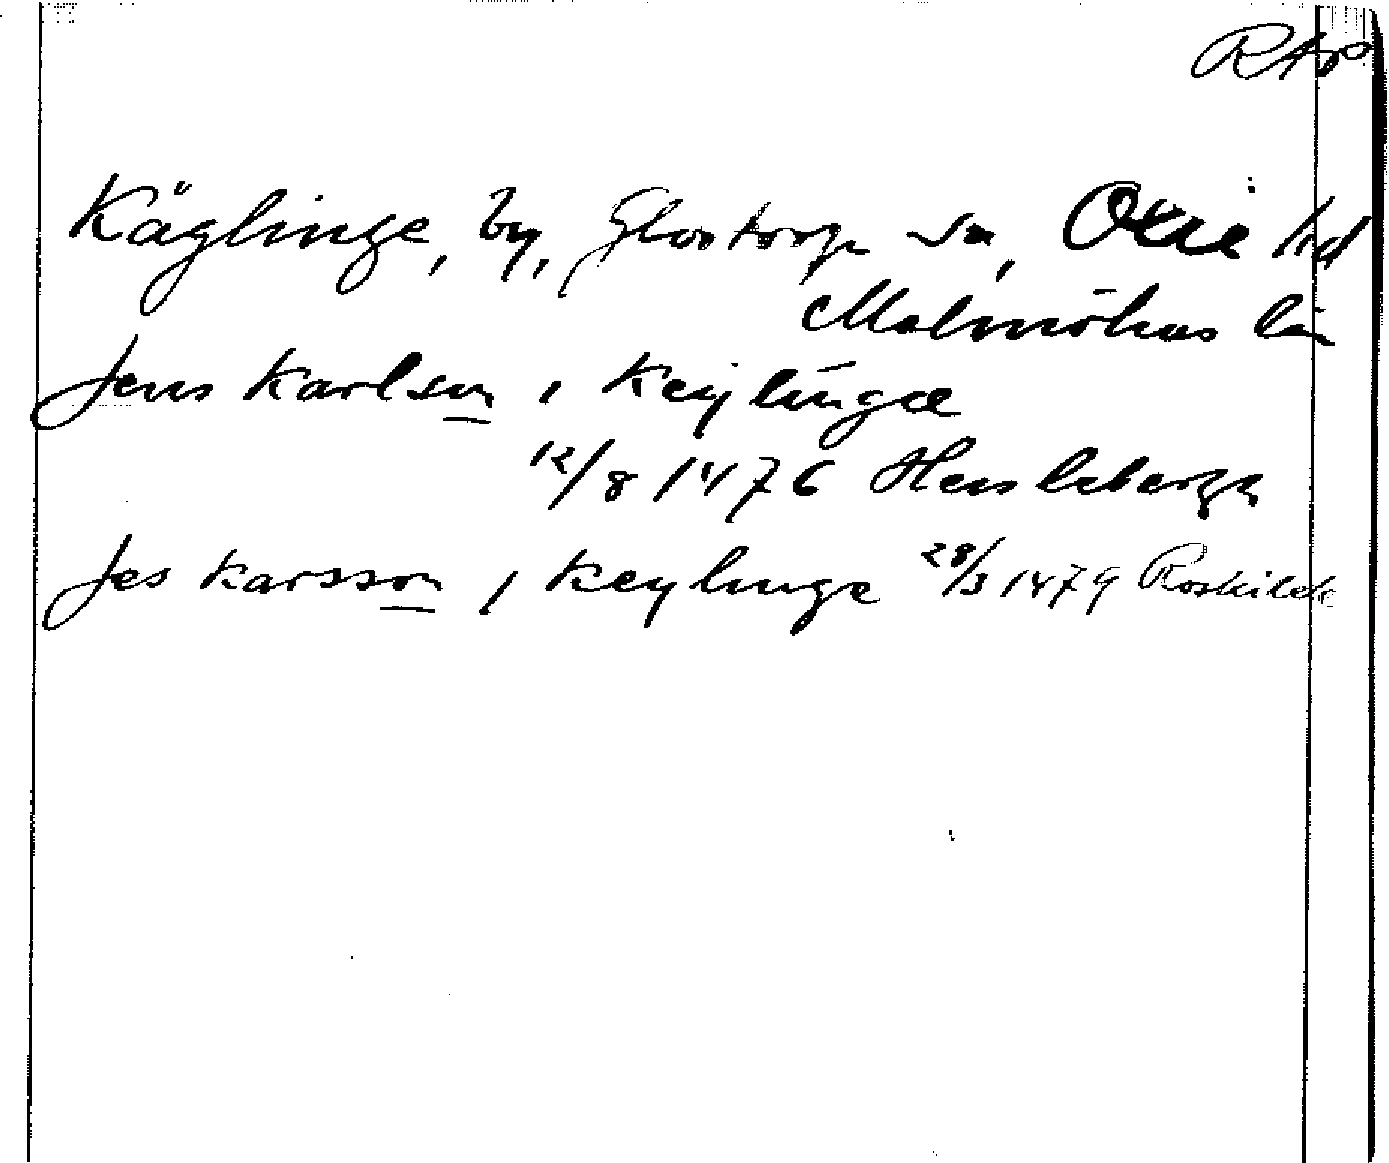 RAP
Käglinge, by, Glostorp sn, Oxie hd
Malmöhus län
Jens Karlson, i Keylingæ
12/8 1476 Henslebergh
Jes Karsson, i Keylinge 28/3 1479 Roskilde